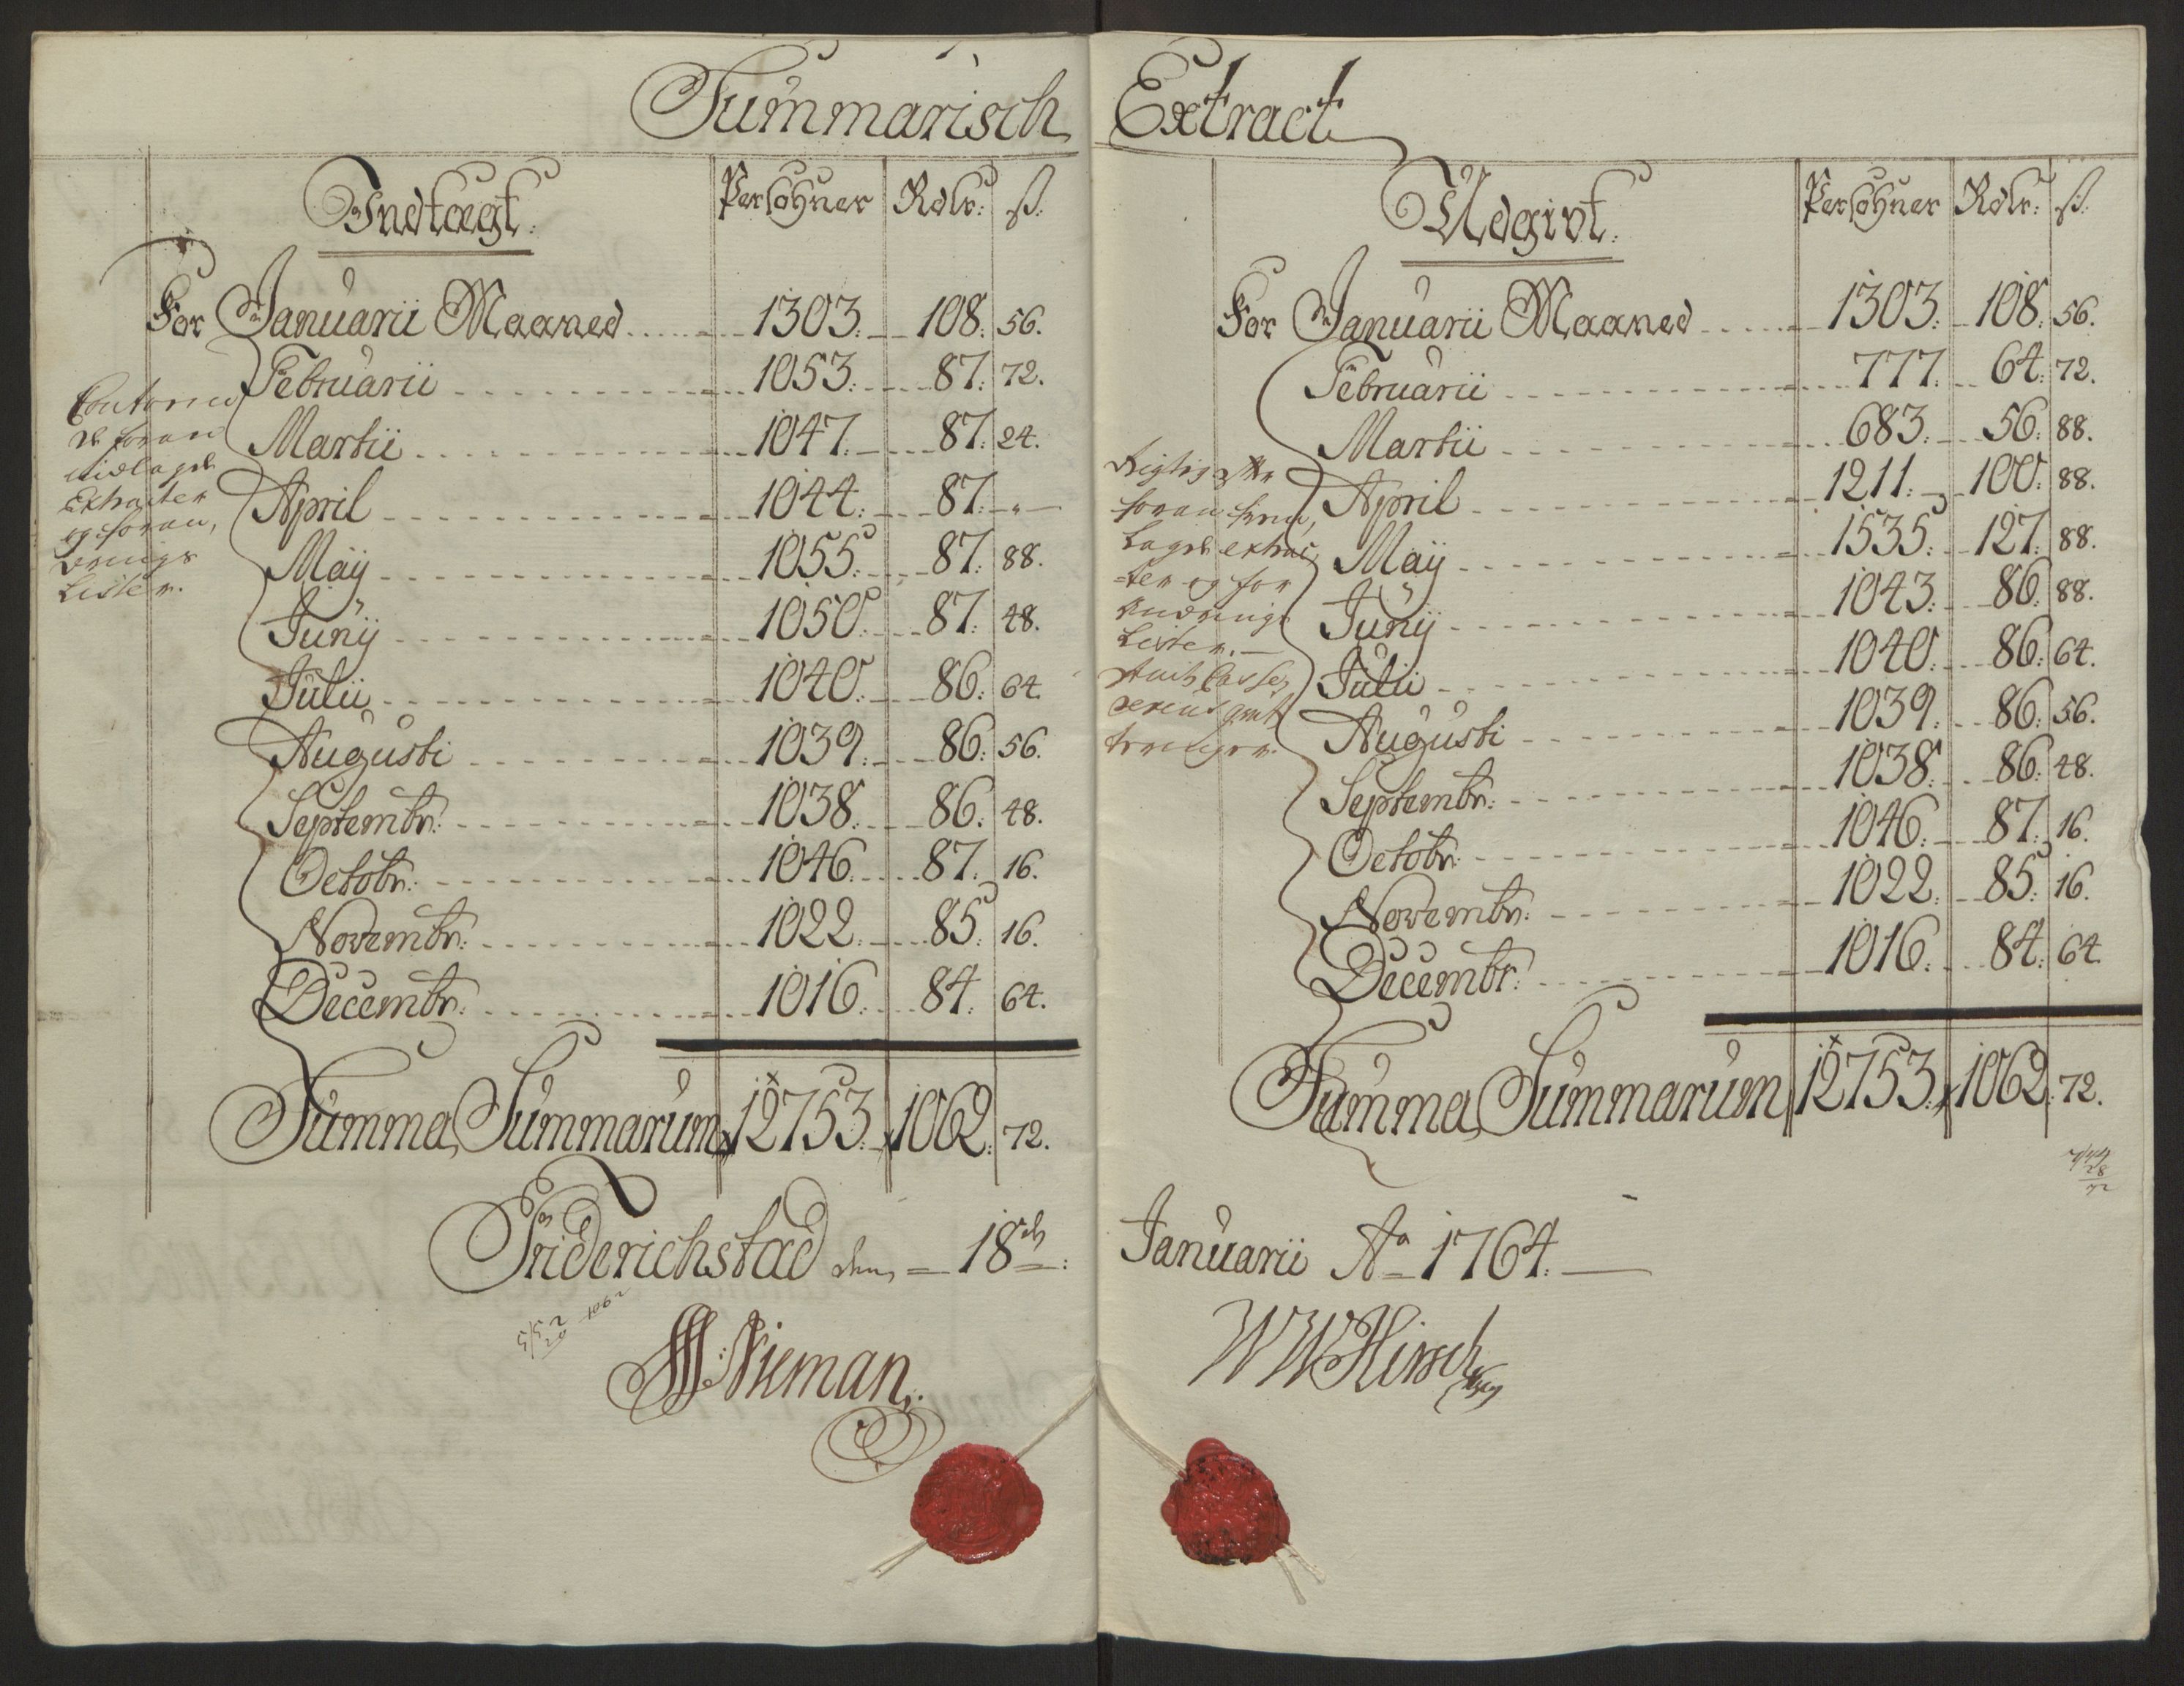 Summarisch Extract
Indtægt. Persohner Rdlr: ß.
For Januarii Maaned 1303. 108. 56.
Februarii 1053. 87. 72.
Martii 1047. 87. 24.
April 1044. 87. "
Maÿ 1055. 87. 88.
Junÿ 1050. 87. 48.
Julii 1040. 86. 64.
Augusti 1039. 86. 56.
Septembr: 1038. 86. 48.
Octobr: 1046. 87. 16.
Novembr: 1022. 85. 16.
Decembr: 1016. 84. 64.
Summa Summarum 12753. 1062. 72.
foran
Extracter
og foran,
Lister.
Udgivt. Persohner Rdlr: ß.
For Januarii Maaned 1303. 108. 56.
Februarii 777. 64. 72.
Martii 683. 56. 88.
April 1211. 100. 88.
Maÿ 1535. 127. 88.
Junÿ 1043. 86. 88.
Julii 1040. 86. 64.
Augusti 1039. 86. 56.
Septembr: 1038. 86. 48.
Octobr: 1046. 87. 16.
Novembr: 1022. 85. 16.
Decembr: 1016. 84. 64.
Summa Summarum 12753. 1062. 72.
Rigtig
foran
Lagde extrac
ter og for
Lister.
Friderichstad den 18de: Januarii Ao 1764.
1062
Nieman
WWHirsch